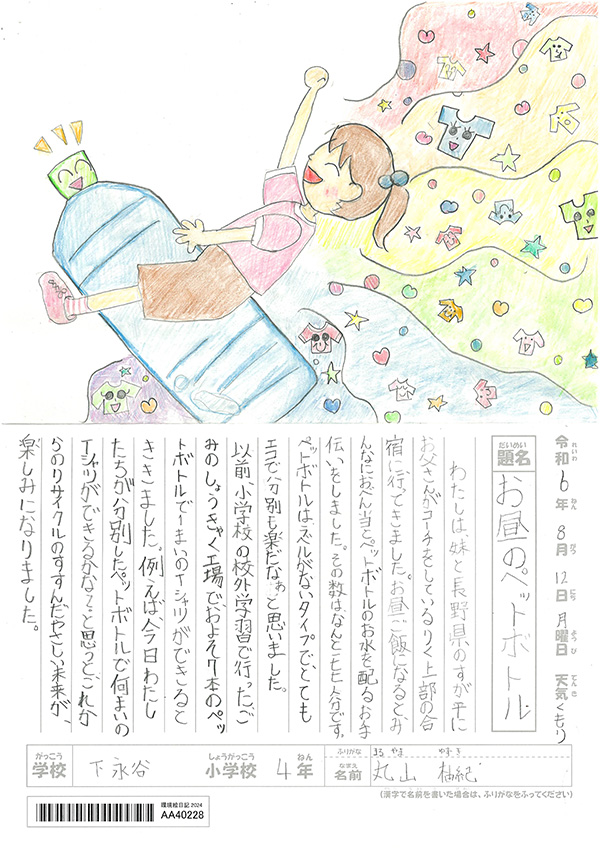 令和6年8月12日月曜日 天気くもり
題名 お昼のペットボトル
わたしは、妹と長野県のすが平に
お父さんがコーチをしているりく上部の合
宿に行ってきました。お昼ご飯になるとみ
んなにおべん当とペットボトルのお水を配るお手
伝いをしました。その数は、なんと二七七人分です。
ペットボトルはラベルがないタイプで、とても
エコで分別も楽だなぁと思いました。
以前、小学校の校外学習で行った、ご
みのしょうきゃく工場でおよそ7本のペッ
トボトルで1まいのTシャツができると
ききました。例えば、今日わたし
たちが分別したペットボトルで何まいの
Tシャツができるかな?と思うと、これか
らのリサイクルのすすんだやさしい未来が、
楽しみになりました。
がっこう 学校 下永谷 しょうがっこう 小学校 4年 ふりがな まる やま ゆずき
なまえ 名前 丸山 柚紀
(漢字で名前を書いた場合は、ふりがなをふってください)
環境絵日記2024
AA40228